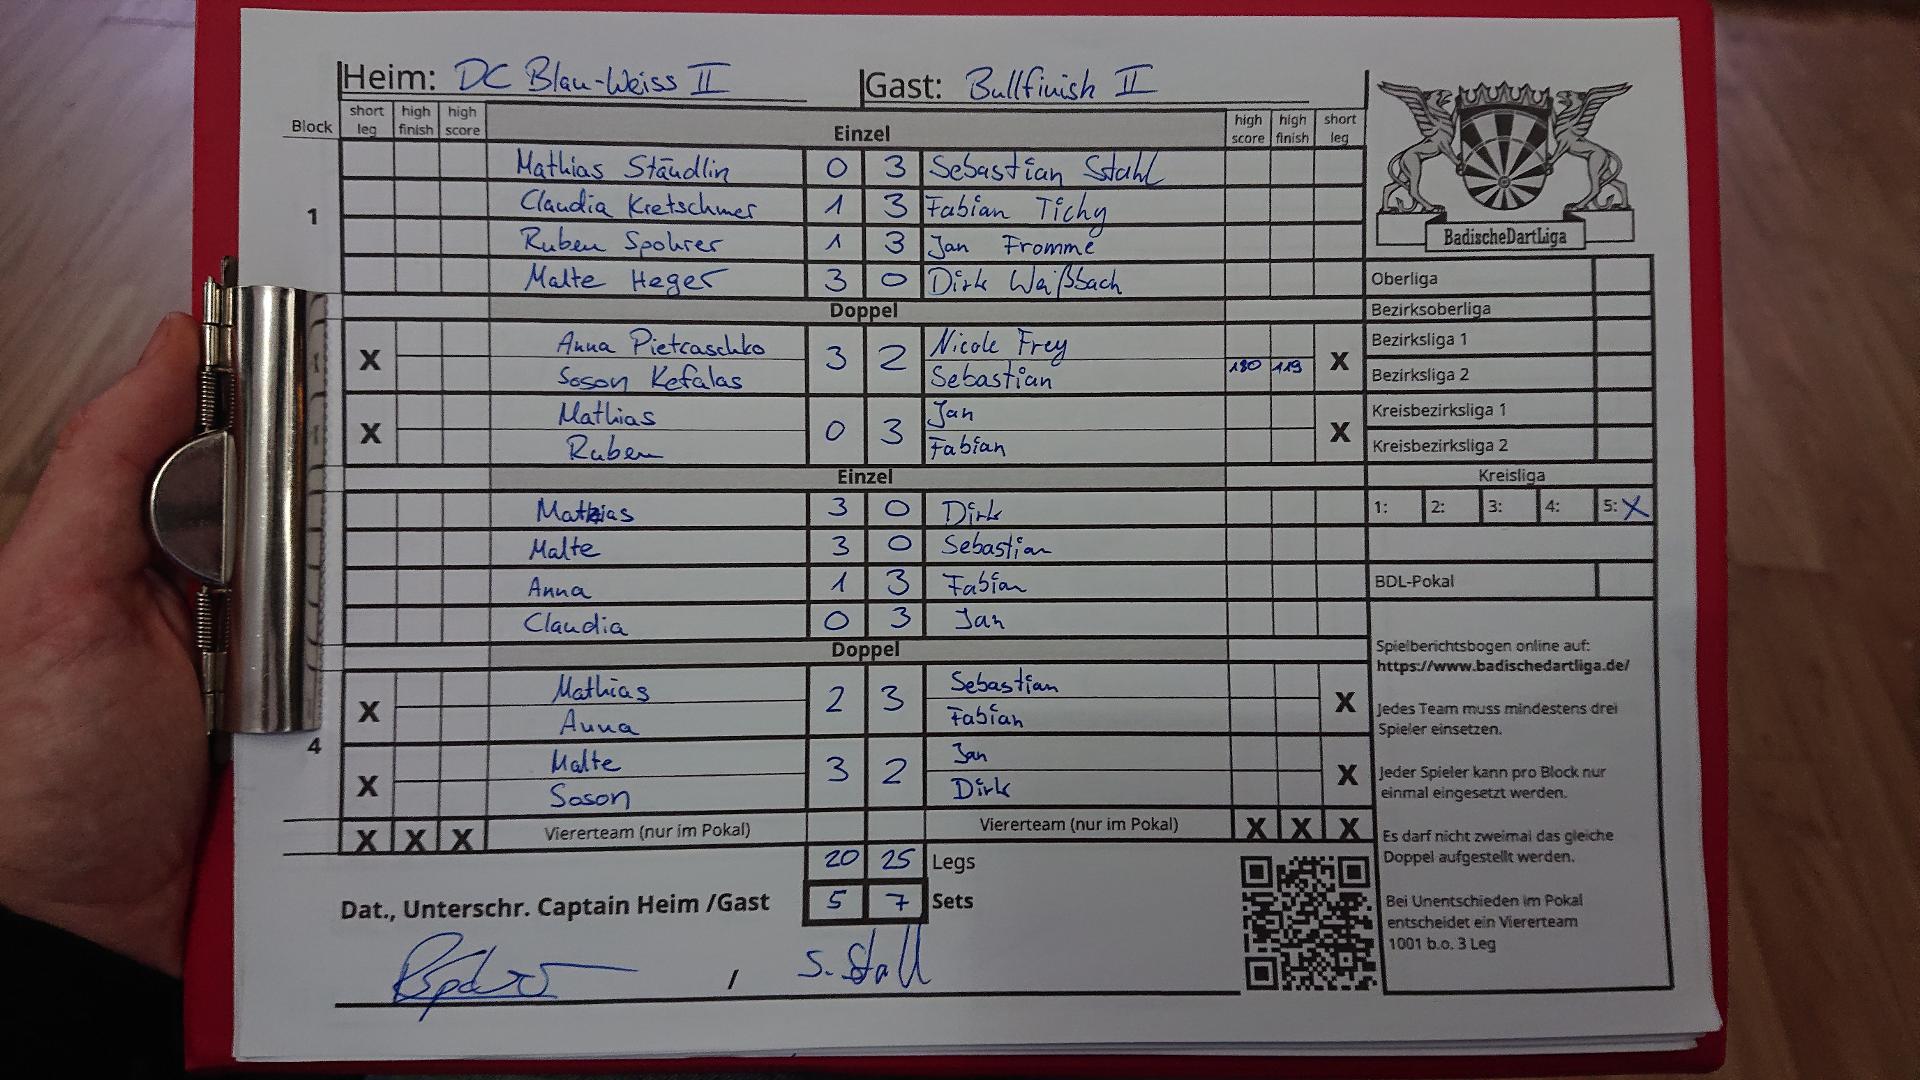 Heim: DC Blau-Weiss II Gast: Bullfinish II
Block short leg high finish high score Einzel high score high finish short leg
Mathias Ständlin 0 3 Sebastian Stahl
1 Claudia Kretschmer 1 3 Fabian Tichy
Ruben Spohrer 1 3 Jan Fromme
Malte Heger 3 0 Dirk Weißbach
Doppel
X Anna Pietraschko 3 2 Nicole Frey X
Soson Kefalas Sebastian 180 119
X Mathias 0 3 Jan X
Ruben Fabian
Einzel
Mathias 3 0 Dirk
Malte 3 0 Sebastian
Anna 1 3 Fabian
Claudia 0 3 Jan
Doppel
X Mathias 2 3 Sebastian X
Anna Fabian
4
X Malte 3 2 Jan X
Soson Dirk
X X X Viererteam (nur im Pokal) Viererteam (nur im Pokal) X X X
20 25 Legs
Dat., Unterschr. Captain Heim /Gast 5 7 Sets
/ S. Stahl
BadischeDartLiga
Oberliga
Bezirksoberliga
Bezirksliga 1
Bezirksliga 2
Kreisbezirksliga 1
Kreisbezirksliga 2
Kreisliga
1: 2: 3: 4: 5: X
BDL-Pokal
Spielberichtsbogen online auf:
https://www.badischedartliga.de/
Jedes Team muss mindestens drei
Spieler einsetzen.
Jeder Spieler kann pro Block nur
einmal eingesetzt werden.
Es darf nicht zweimal das gleiche
Doppel aufgestellt werden.
Bei Unentschieden im Pokal
entscheidet ein Viererteam
1001 b.o. 3 Leg